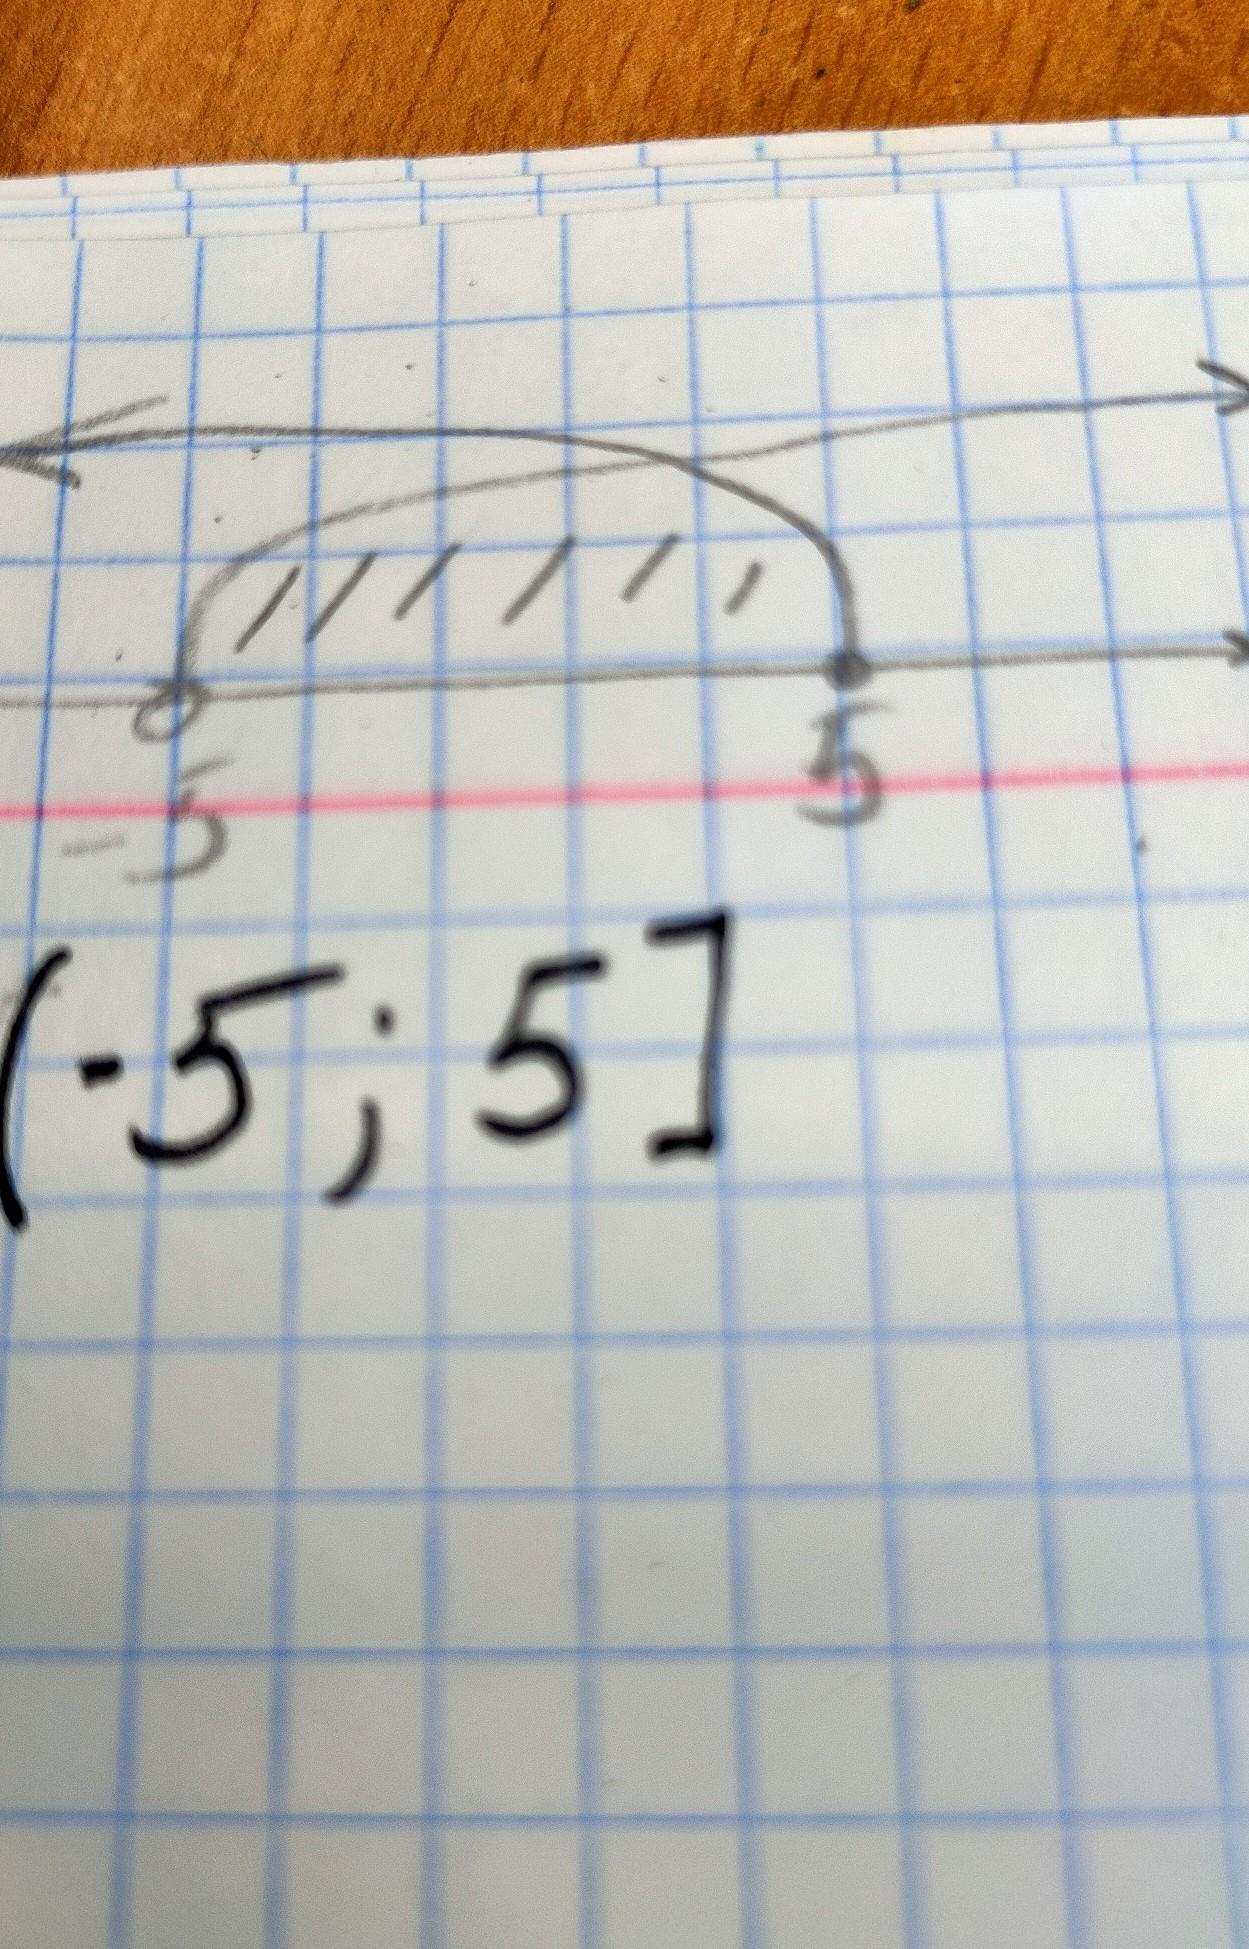 -5 5
(-5; 5]